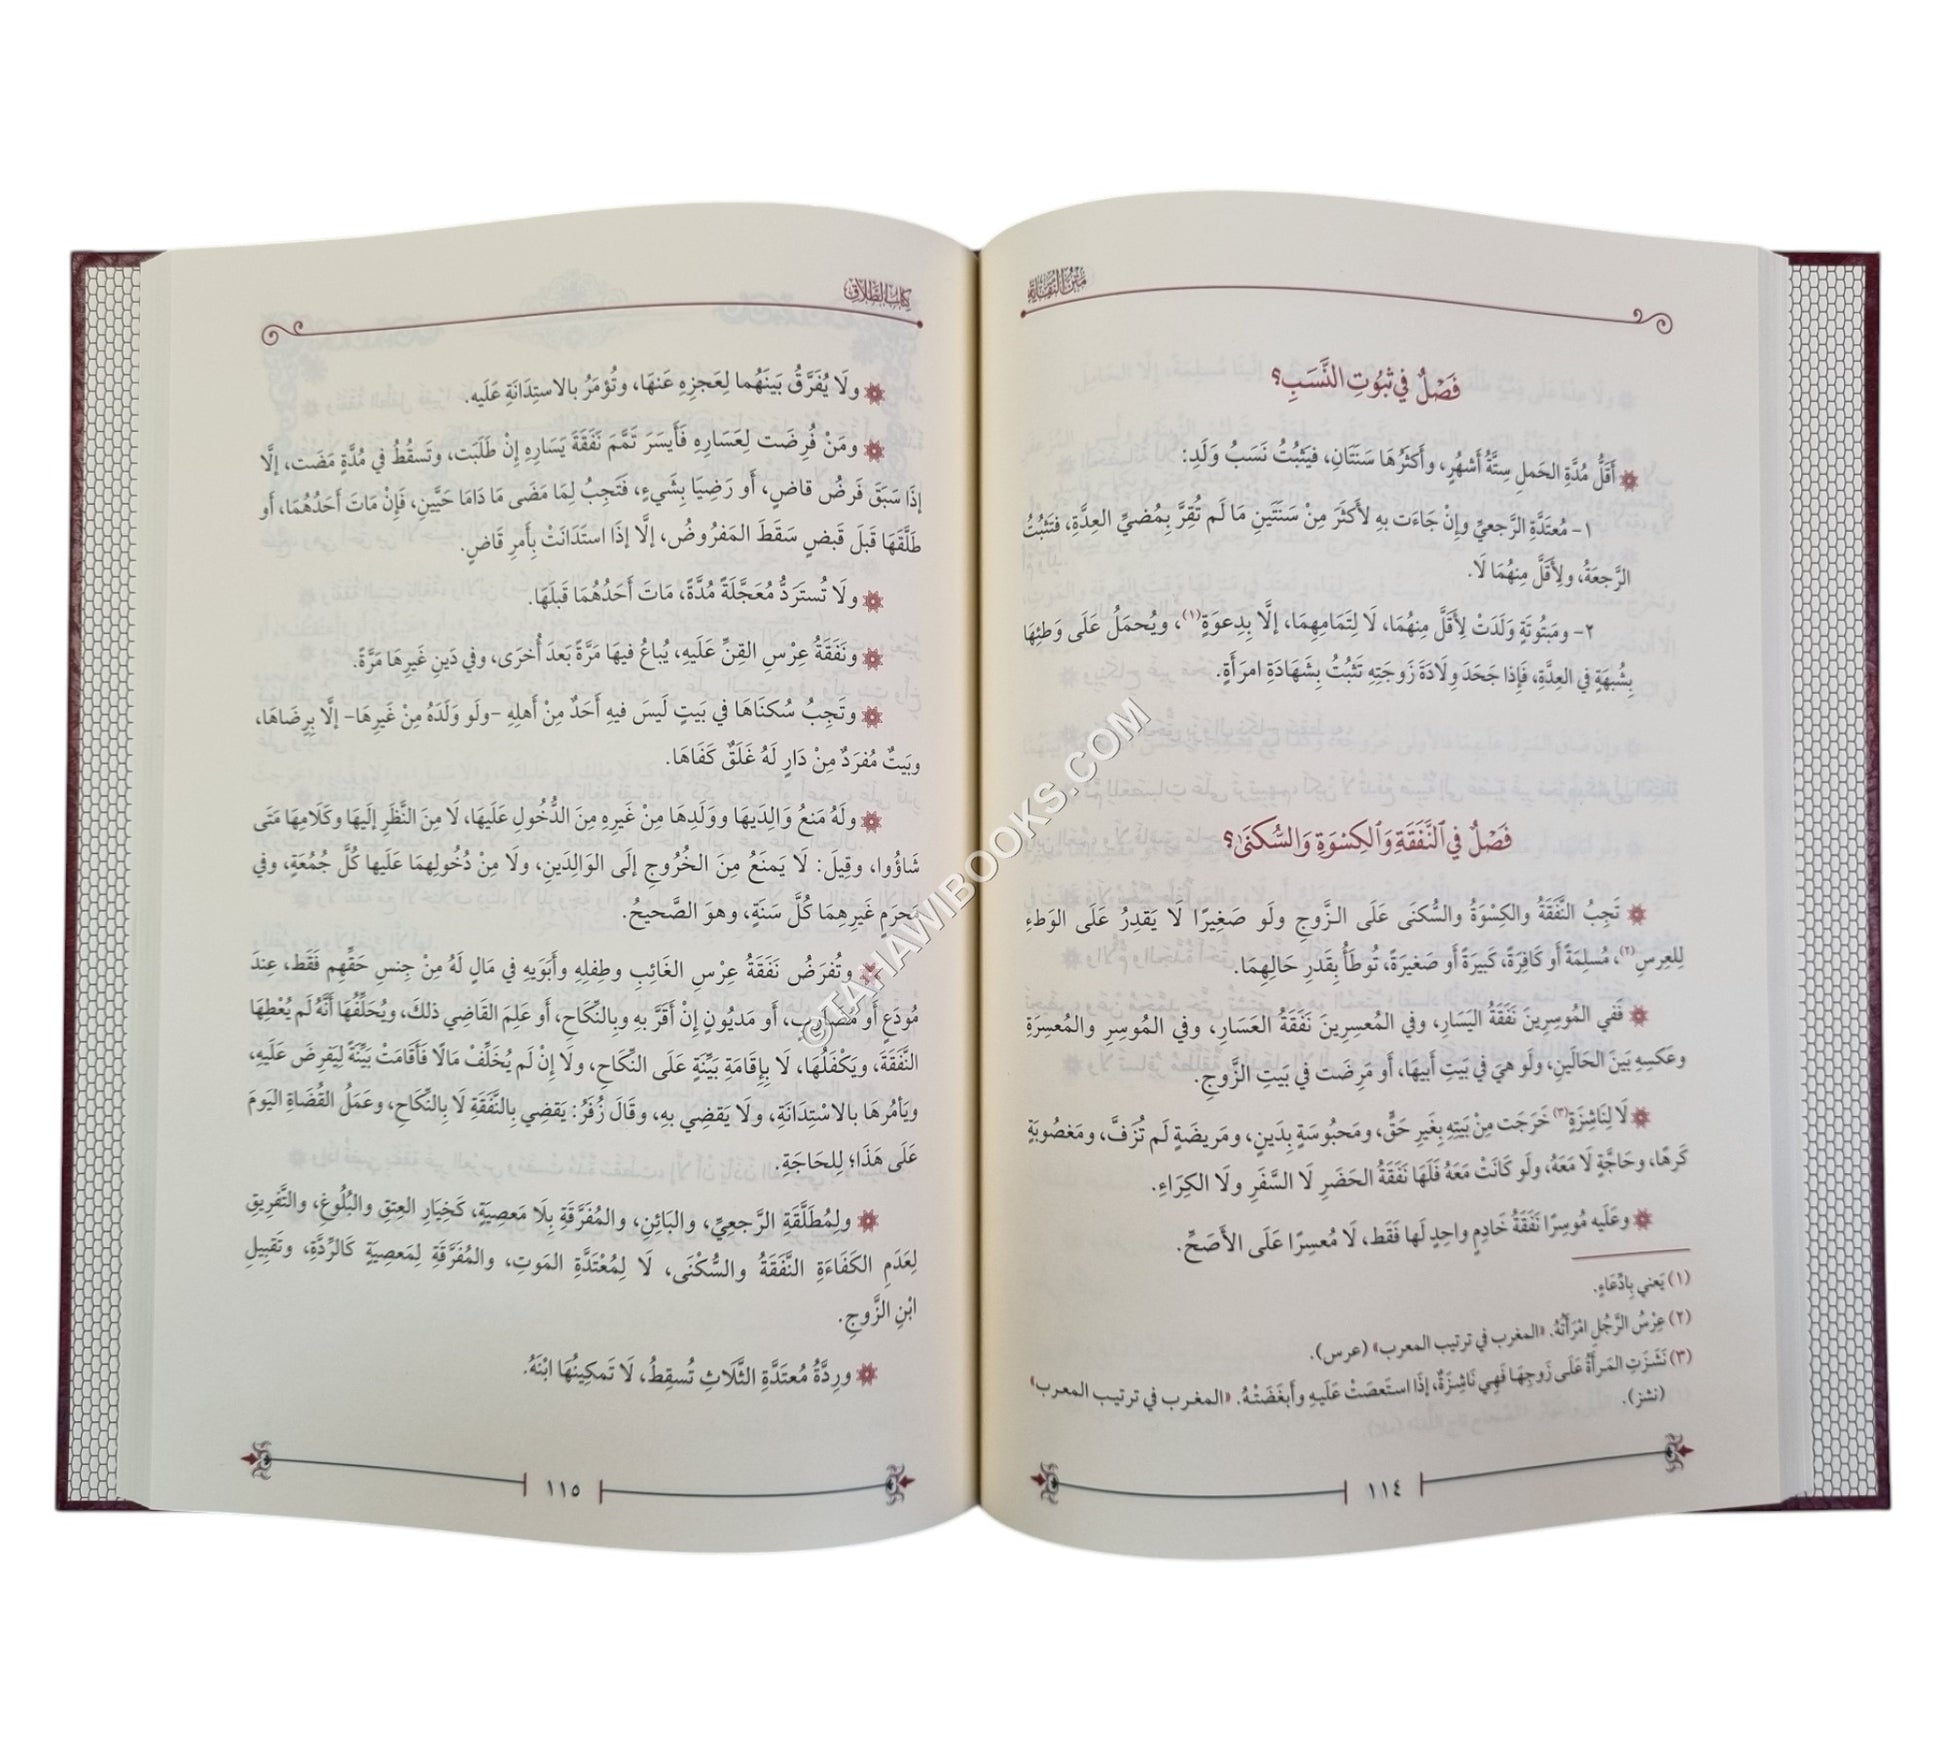 مَتْنُ النُّقَايَةِ
فَصْلٌ فِي ثبُوتِ النَّسَبِ؟
أَقَلُّ مُدَّةِ الحَملِ سِتَّةُ أَشهُرٍ، وأَكثَرُهَا سَنَتَانِ، فيَثبُتُ نَسَبُ وَلَدِ:
١- مُعتَدَّةِ الرَّجعيِّ وإنْ جَاءَت بهِ لأَكثَرَ مِنْ سَنَتَينِ مَا لَم تُقِرَّ بِمُضيِّ العِدَّةِ، فتَثبُتُ
الرَّجعَةُ، ولِأَقَلَّ مِنهُمَا لَا.
٢- ومَبتُوتَةٍ وَلَدَتْ لِأَقَلَّ مِنهُمَا، لَا لِتَمَامِهِمَا، إلَّا بِدِعوَةٍ(١)، ويُحمَلُ عَلَى وَطئِهَا
بِشُبهَةٍ في العِدَّةِ، فَإِذا جَحَدَ وِلَادَةَ زَوجَتِهِ تَثبُتُ بِشَهَادَةِ امرَأَةٍ.
فَصْلٌ فِي ٱلنَّفَقَةِ وَٱلكِسْوَةِ وَالسُّكنَىٰ؟
تَجِبُ النَّفَقَةُ والكِسْوَةُ والسُّكنَى عَلَى الزَّوجِ ولَو صَغِيرًا لَا يَقدِرُ عَلَى الوَطءِ
لِلعِرسِ(٢)، مُسلِمَةً أَو كَافِرَةً، كَبِيرَةً أَو صَغيرَةً، تُوطَأُ بِقَدرِ حَالِهِمَا.
فَفي المُوسِرِينَ نَفَقَةُ اليَسَارِ، وفي المُعسِرِينَ نَفَقَةُ العَسَارِ، وفي المُوسِرِ والمُعسِرَةِ
وعَكسِهِ بَينَ الحَالَينِ، ولَو هيَ في بَيتِ أَبيهَا، أَو مَرِضَت في بَيتِ الزَّوجِ.
لَا لِنَاشِزَةٍ(٣) خَرَجَت مِنْ بَيتِهِ بِغَيرِ حَقٍّ، ومَحبُوسَةٍ بِدَينٍ، ومَريضَةٍ لَم تُزَفَّ، ومَغصُوبَةٍ
كَرهًا، وحَاجَّةٍ لَا مَعَهُ، ولَو كَانَتْ مَعَهُ فَلَهَا نَفَقَةُ الحَضَرِ لَا السَّفَرِ ولَا الكِرَاءِ.
وعَلَيه مُوسِرًا نَفَقَةُ خَادِمٍ واحِدٍ لَها فَقَط، لَا مُعسِرًا عَلَى الأَصَحِّ.
(١) يَعني بِادِّعَاءٍ.
(٢) عِرْسُ الرَّجُلِ امْرَأَتُهُ. «المغرب في ترتيب المعرب» (عرس).
(٣) نَشَزَتِ المَرأَةُ عَلَى زَوجِهَا فَهِي نَاشِزَةٌ، إذَا استَعصَتْ عَلَيهِ وأَبغَضَتْهُ. «المغرب في ترتيب المعرب»
(نشز).
١١٤
كِتَابُ الطَّلَاقِ
ولَا يُفَرَّقُ بَينَهُما لِعَجزِهِ عَنهَا، وتُؤمَرُ بالاستِدَانَةِ عَلَيه.
ومَنْ فُرِضَت لِعَسَارِهِ فَأَيسَرَ تَمَّمَ نَفَقَةَ يَسَارِهِ إنْ طَلَبَت، وتَسقُطُ في مُدَّةٍ مَضَت، إلَّا
إذَا سَبَقَ فَرضُ قاضٍ، أَو رَضِيَا بِشَيءٍ، فَتَجِبُ لِمَا مَضَى مَا دَامَا حَيَّينِ، فَإنْ مَاتَ أَحَدُهُمَا، أَو
طَلَّقَهَا قَبلَ قَبضٍ سَقَطَ المَفرُوضُ، إلَّا إذَا استَدَانَتْ بِأَمرِ قَاضٍ.
ولَا تُستَرَدُّ مُعَجَّلَةُ مُدَّةً، مَاتَ أَحَدُهُمَا قَبلَهَا.
ونَفَقَةُ عِرْسِ القِنِّ عَلَيهِ، يُباعُ فيهَا مَرَّةً بَعدَ أُخرَى، وفي دَينِ غَيرِهَا مَرَّةً.
وتَجِبُ سُكنَاهَا في بَيتٍ لَيسَ فيهِ أَحَدٌ مِنْ أَهلِهِ -ولَو وَلَدَهُ مِنْ غَيرِهَا- إلَّا بِرِضَاهَا،
وبَيتٌ مُفرَدٌ مِنْ دَارٍ لَهُ غَلَقٌ كَفَاهَا.
ولَهُ مَنعُ وَالِدَيهَا ووَلَدِها مِنْ غَيرِهِ مِنَ الدُّخُولِ عَلَيهَا، لَا مِنَ النَّظَرِ إلَيهَا وكَلَامِهَا مَتَى
شَاؤُوا، وقِيلَ: لَا يَمنَعُ مِنَ الخُرُوجِ إلَى الوَالِدَينِ، ولَا مِنْ دُخُولِهِمَا عَلَيها كُلَّ جُمُعَةٍ، وفي
مَحرَمٍ غَيرِهِمَا كُلَّ سَنَةٍ، وهوَ الصَّحيحُ.
وتُفرَضُ نَفَقَةُ عِرْسِ الغَائِبِ وطِفلِهِ وأَبَوَيهِ في مَالٍ لَهُ مِنْ جِنسِ حَقِّهِم فَقَط، عِندَ
مُودَعٍ أَو مُضَارِبٍ، أَو مَديُونٍ إنْ أَقَرَّ بهِ وبِالنِّكَاحِ، أَو عَلِمَ القَاضِي ذلكَ، ويُحَلِّفُهَا أَنَّهُ لَم يُعْطِهَا
النَّفَقَةَ، ويَكْفُلُهَا، لَا بِإقَامَةِ بَيِّنَةٍ عَلَى النِّكَاحِ، ولَا إنْ لَم يُخَلِّفْ مَالًا فَأَقَامَتْ بَيِّنَةً لِيَفرِضَ عَلَيهِ،
ويَأمُرُهَا بالاسْتِدَانَةِ، ولَا يَقضِي بهِ، وقَالَ زُفَرُ: يَقضِي بِالنَّفَقَةِ لَا بِالنِّكَاحِ، وعَمَلُ القُضَاةِ اليَومَ
عَلَى هَذَا؛ لِلحَاجَةِ.
ولِمُطَلَّقَةِ الرَّجعِيِّ، والبَائِنِ، والمُفَرَّقَةِ بِلَا مَعصِيَةٍ، كَخِيَارِ العِتقِ والبُلُوغِ، والتَّفرِيقِ
لِعَدَمِ الكَفَاءَةِ النَّفَقَةُ والسُّكْنَى، لَا لِمُعْتَدَّةِ المَوتِ، والمُفَرَّقَةِ لِمَعصِيَةٍ كَالرِّدَّةِ، وتَقبِيلِ
ابْنِ الزَّوجِ.
ورِدَّةُ مُعتَدَّةِ الثَّلَاثِ تُسقِطُ، لَا تَمكِينُهَا ابْنَهُ.
١١٥
©TAHAWIBOOKS.COM